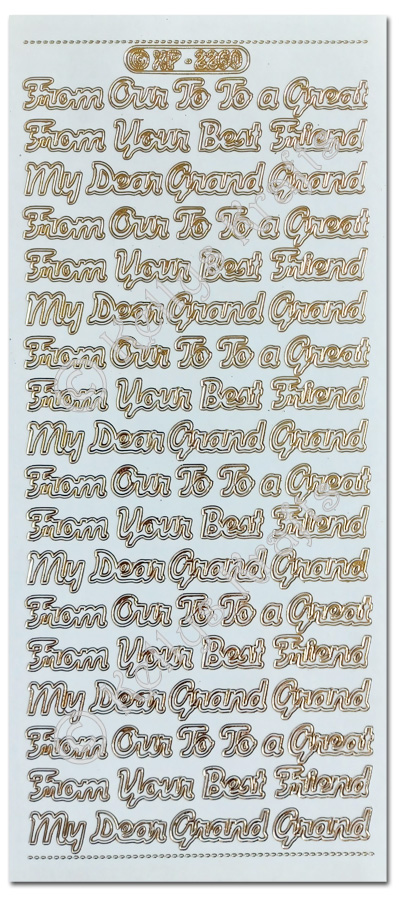 © XP - 2360
From Our To To a Great
From Your Best Friend
My Dear Grand Grand
From Our To To a Great
From Your Best Friend
My Dear Grand Grand
From Our To To a Great
From Your Best Friend
My Dear Grand Grand
From Our To To a Great
From Your Best Friend
My Dear Grand Grand
From Our To To a Great
From Your Best Friend
My Dear Grand Grand
From Our To To a Great
From Your Best Friend
My Dear Grand Grand
© Kellys Krafts
© Kellys Krafts